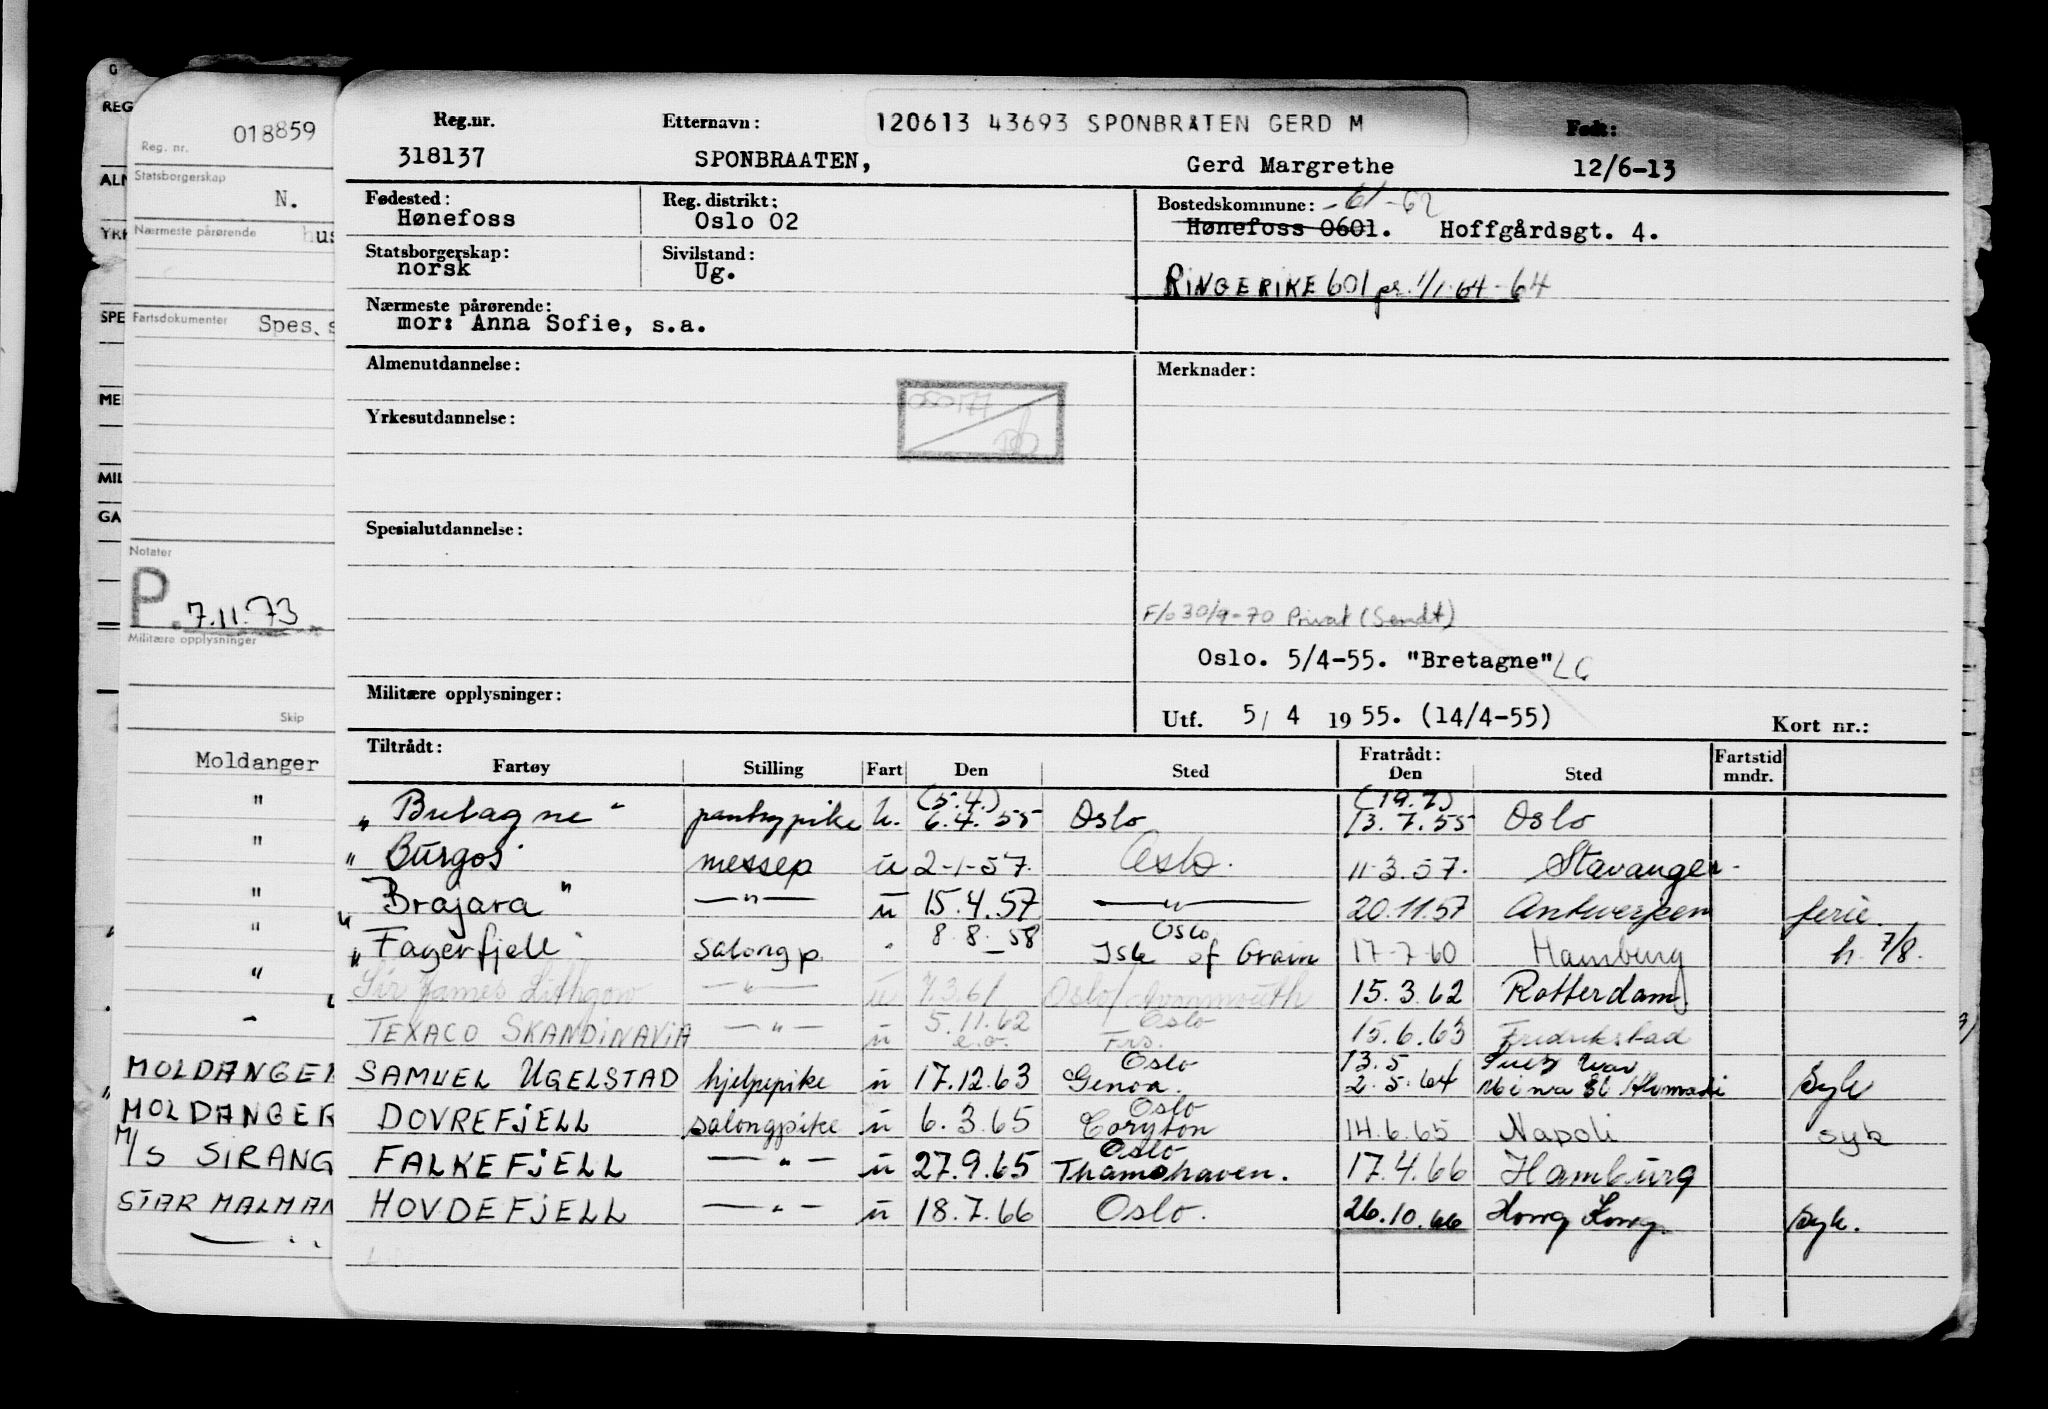 G
REG
ALM
YRK
SPE
ME
MIL
GA
018859
Reg. nr.
Statsborgerskap
N.
Nærmeste pårørende hus
Fartsdokumenter Spes. s
Notater
P. 7.11.73
Militære opplysninger
Skip
Moldanger
"
"
"
"
"
"
MOLDANGER
MOLDANGER
M/S SIRANG
STAR MALMAN
— " —
120613 43693 SPONBRÅTEN GERD M
Reg.nr. Etternavn: Født:
318137 SPONBRAATEN, Gerd Margrethe 12/6-13
Fødested: Reg. distrikt: Bostedskommune: -61-62
Hønefoss Oslo 02 Hønefoss 0601. Hoffgårdsgt. 4.
Statsborgerskap: Sivilstand:
norsk Ug.
RINGERIKE 601 pr. 1/1-64-64
Nærmeste pårørende:
mor: Anna Sofie, s.a.
Almenutdannelse: Merknader:
Yrkesutdannelse:
Spesialutdannelse:
F/o 30/9-70 Privat (Sendt)
Oslo. 5/4-55. "Bretagne" LG
Militære opplysninger:
Utf. 5/ 4 1955. (14/4-55) Kort nr.:
Tiltrådt: Fratrådt: Fartstid
Fartøy Stilling Fart Den Sted Den Sted mndr.
(5.4.) (19.7)
"Bretagne" pantrypike u. 6.4.55 Oslo 13.7.55 Oslo
"Burgos" messep u 2-1-57. Oslo. 11-3.57. Stavanger-
"Brajara" — " — u 15.4.57 — " — 20.11.57 Antwerpen ferie.
8.8.58 Oslo
"Fagerfjell" salongp. " Isle of Grain 17-7-60 Hamburg h. 7/8.
Sir James Lithgow — " — u 7.3.61 Oslo/Avonmouth 15.3.62 Rotterdam
TEXACO SKANDINAVIA — " — u 5.11.62 Oslo 15.6.63 Fredrikstad
e.o. Frs.
Oslo 13.5 Suez
SAMUEL UGELSTAD hjelpepike u 17.12.63 Genoa. 2.5.64 Mina Al Ahmadi Syk
Oslo
DOVREFJELL salongpike u 6.3.65 Coryton 14.6.65 Napoli syk
Oslo
FALKEFJELL — " — u 27.9.65 Thamshaven. 17.4.66 Hamburg
HOVDEFJELL — " — u 18.7.66 Oslo. 26.10.66 Hong Kong. Syk.